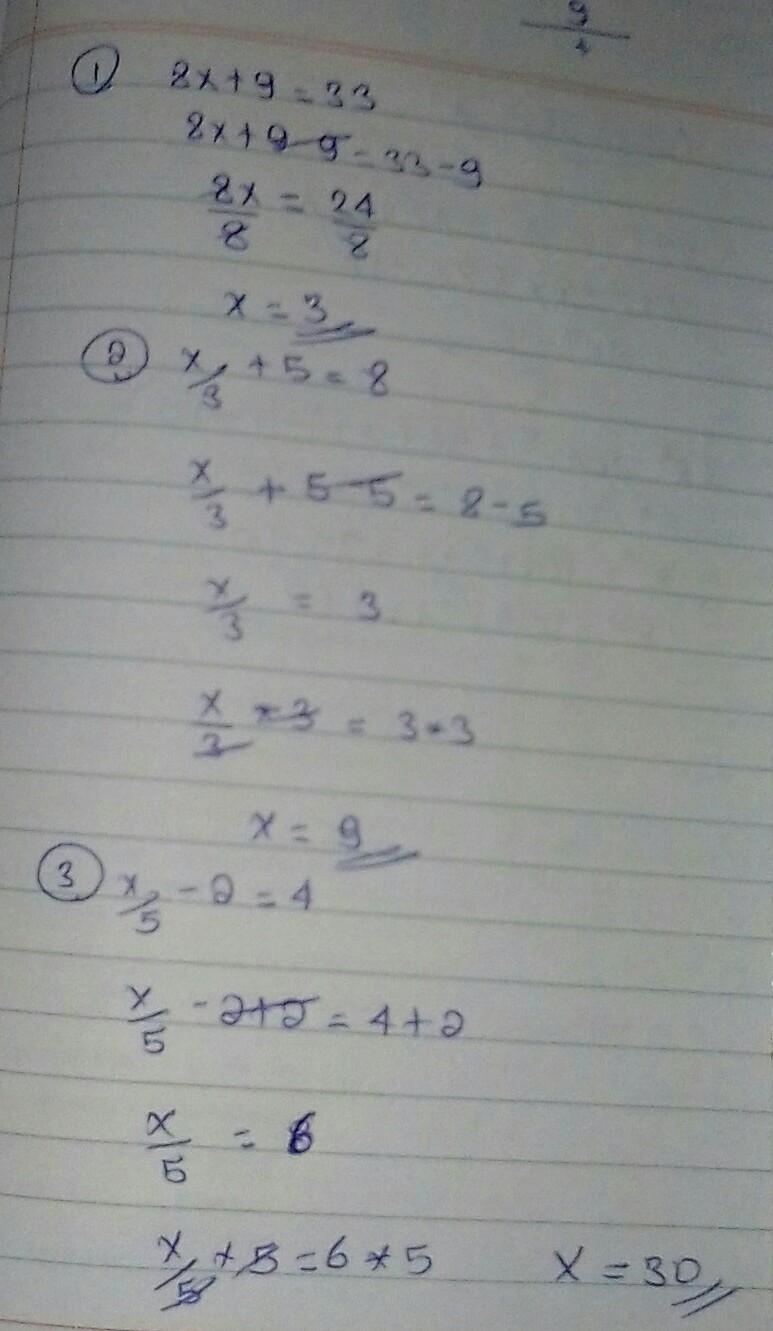 9
① 8x + 9 = 33
8x + 9 - 9 = 33 - 9
8x/8 = 24/8
x = 3
② x/3 + 5 = 8
x/3 + 5 - 5 = 8 - 5
x/3 = 3
x/3 * 3 = 3 * 3
x = 9
③ x/5 - 2 = 4
x/5 - 2 + 2 = 4 + 2
x/5 = 6
x/5 * 5 = 6 * 5 x = 30